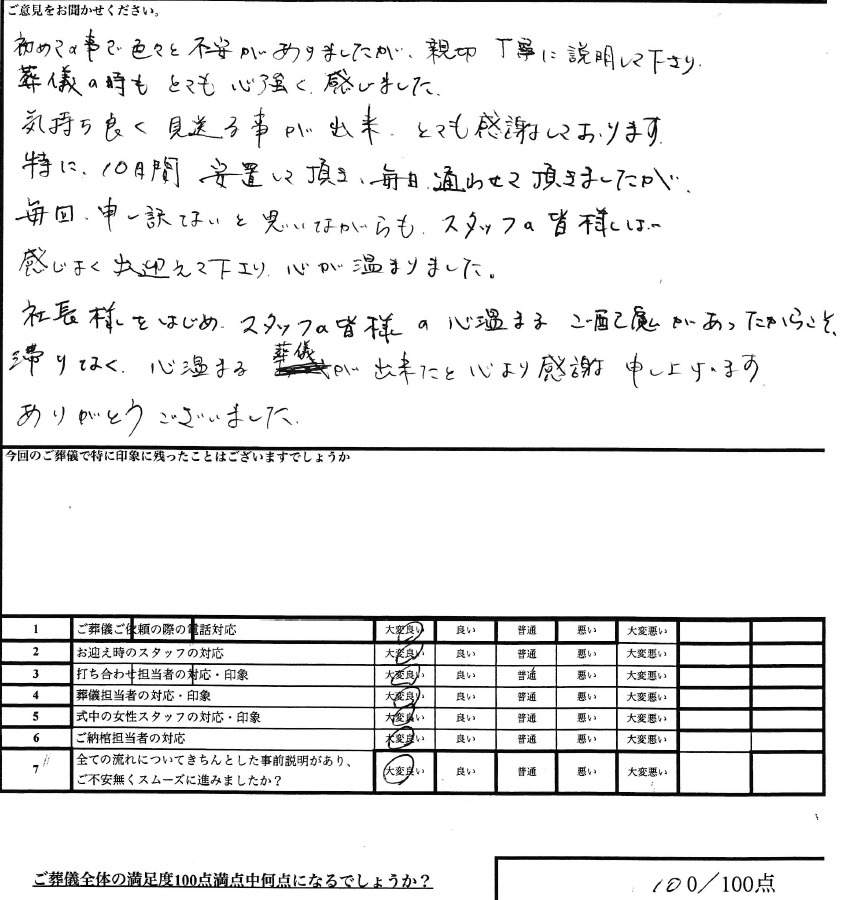 ご意見をお聞かせください。
初めての事で色々と不安がありましたが、親切丁寧に説明して下さり、
葬儀の時もとても心強く感じました。
気持ち良く見送る事が出来、とても感謝しております。
特に、10日間安置して頂き、毎日通わせて頂きましたが、
毎回、申し訳ないと思いながらも、スタッフの皆様は
感じよく出迎えて下さり、心が温まりました。
社長様をはじめ、スタッフの皆様の心温まるご配慮があったからこそ、
滞りなく、心温まる葬儀が出来たと心より感謝申し上げます。
ありがとうございました。
今回のご葬儀で特に印象に残ったことはございますでしょうか
1 ご葬儀ご依頼の際の電話対応 大変良い 良い 普通 悪い 大変悪い
2 お迎え時のスタッフの対応 大変良い 良い 普通 悪い 大変悪い
3 打ち合わせ担当者の対応・印象 大変良い 良い 普通 悪い 大変悪い
4 葬儀担当者の対応・印象 大変良い 良い 普通 悪い 大変悪い
5 式中の女性スタッフの対応・印象 大変良い 良い 普通 悪い 大変悪い
6 ご納棺担当者の対応 大変良い 良い 普通 悪い 大変悪い
7 全ての流れについてきちんとした事前説明があり、
ご不安無くスムーズに進みましたか？ 大変良い 良い 普通 悪い 大変悪い
ご葬儀全体の満足度100点満点中何点になるでしょうか？ 100／100点